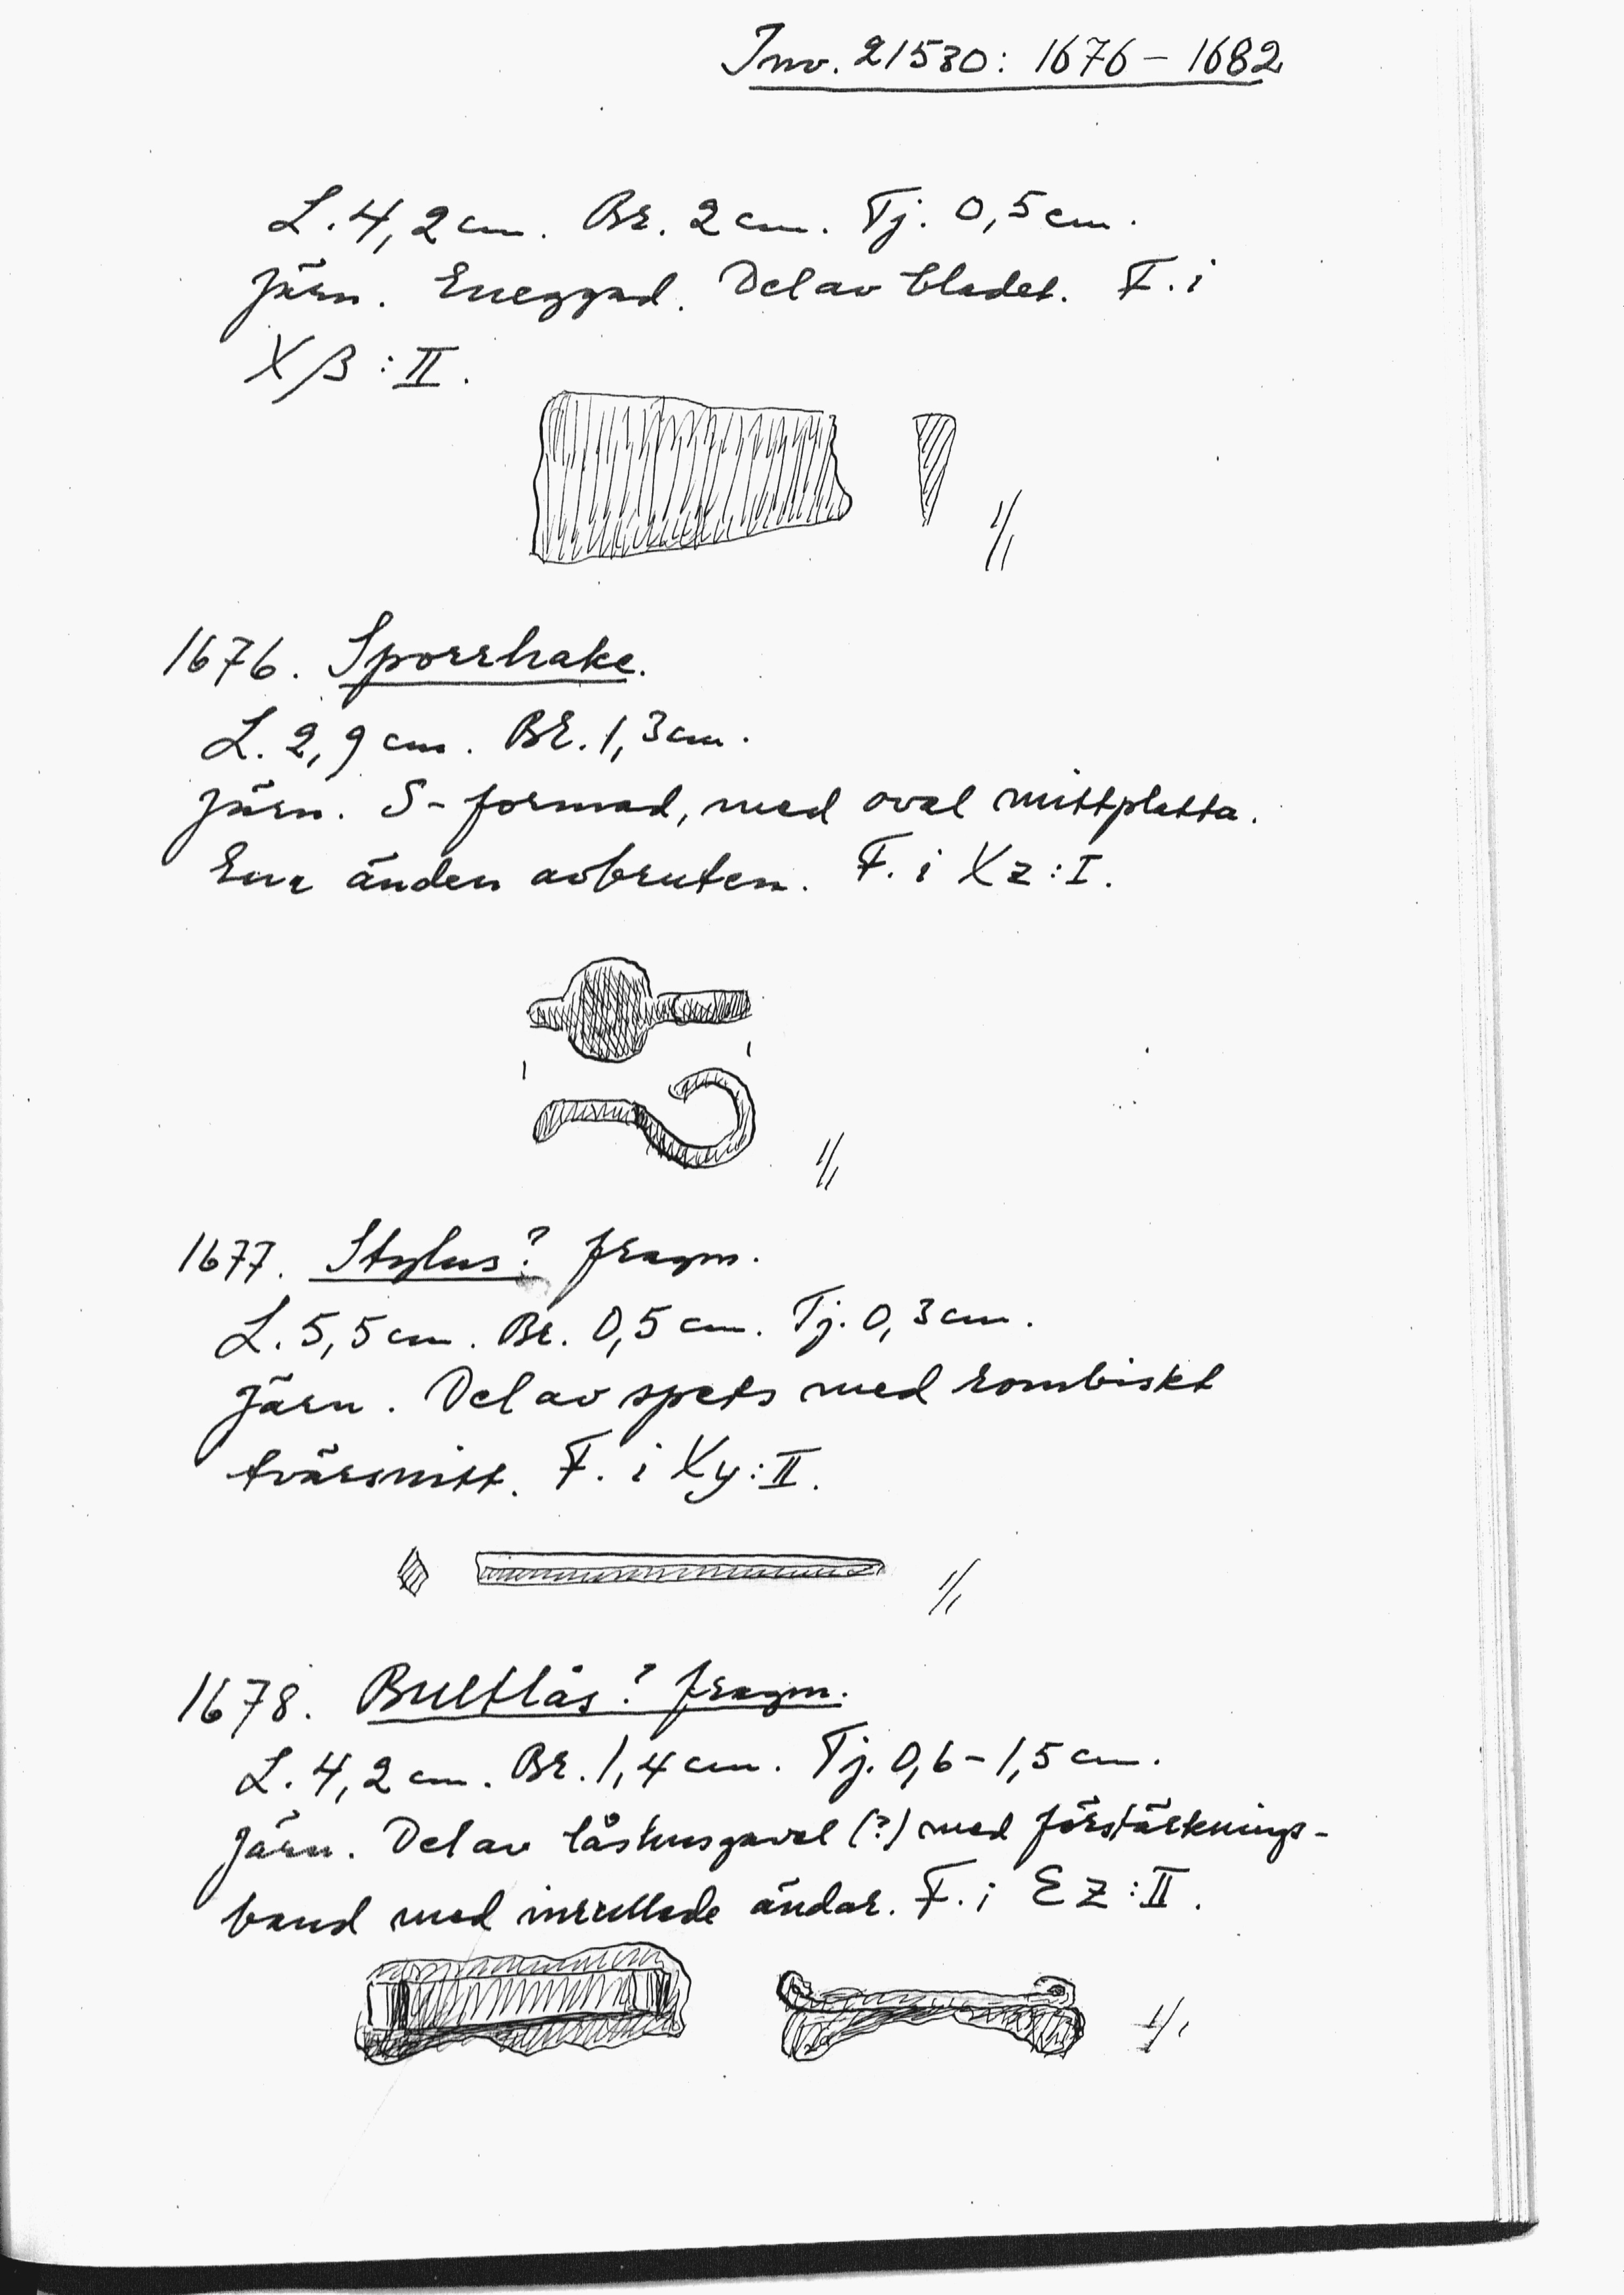 Inv. 21530: 1676 – 1682
L. 4,2 cm. Br. 2 cm. Tj. 0,5 cm.
Järn. Eneggad. Del av bladet. F. i
Xβ : II.
1/1
1676. Sporrhake.
L. 2,9 cm. Br. 1,3 cm.
Järn. S-formad, med oval mittplatta.
Ena änden avbruten. F. i Xz : I.
1/1
1677. Stylus? fragm.
L. 5,5 cm. Br. 0,5 cm. Tj. 0,3 cm.
Järn. Del av spets med rombiskt
tvärsnitt. F. i Xy : II.
1/1
1678. Bultlås? fragm.
L. 4,2 cm. Br. 1,4 cm. Tj. 0,6 – 1,5 cm.
Järn. Del av låshusgavel (?) med förstärknings-
band med inrullade ändar. F. i Ez : II.
1/1